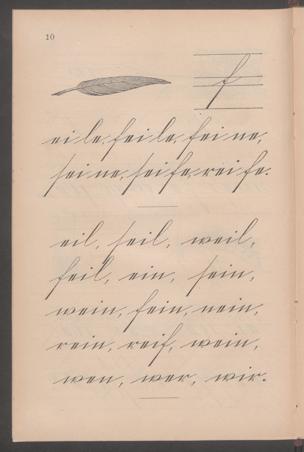 10
f
eile, feile, feine,
seine, seife, reife.
eil, seil, weil,
feil, ein, sein,
wein, fein, nein,
rein, reif, wein,
wen, wer, wir.